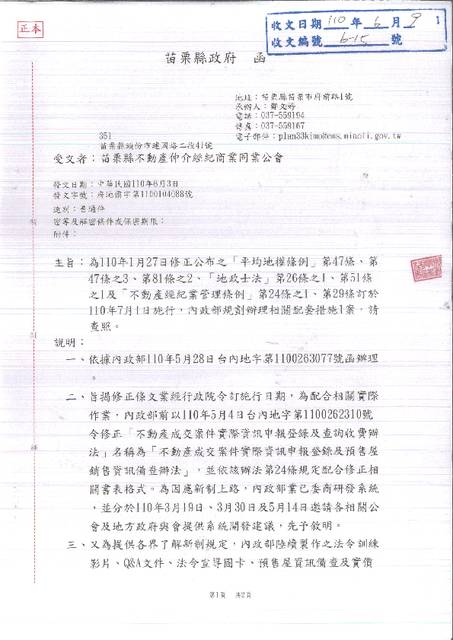 正本
收文日期 110 年 6 月 9
收文編號 6-15 號
苗栗縣政府 函
地址：苗栗縣苗栗市府前路1號
電話：037-559194
傳真：037-559167
351
苗栗縣頭份市建國路二段41號
受文者：苗栗縣不動產仲介經紀商業同業公會
發文日期：中華民國110年6月3日
發文字號：府地價字第1100104088號
速別：普通件
密等及解密條件或保密期限：
附件：
主旨：為110年1月27日修正公布之「平均地權條例」第47條、第
47條之3、第81條之2、「地政士法」第26條之1、第51條
之1及「不動產經紀業管理條例」第24條之1、第29條訂於
110年7月1日施行，內政部規劃辦理相關配套措施1案，請
查照。
說明：
一、依據內政部110年5月28日台內地字第1100263077號函辦理
。
二、旨揭修正條文業經行政院令訂施行日期，為配合相關實際
作業，內政部前以110年5月4日台內地字第1100262310號
令修正「不動產成交案件實際資訊申報登錄及查詢收費辦
法」名稱為「不動產成交案件實際資訊申報登錄及預售屋
銷售資訊備查辦法」，並依該辦法第24條規定配合修正相
關書表格式。為因應新制上路，內政部業已委商研發系統
，並分於110年3月19日、3月30日及5月14日邀請各相關公
會及地方政府與會提供系統開發建議，先予敘明。
三、又為提供各界了解新制規定，內政部陸續製作之法令訓練
影片、Q&A文件、法令宣導圖卡、預售屋資訊備查及實價
第1頁 共2頁